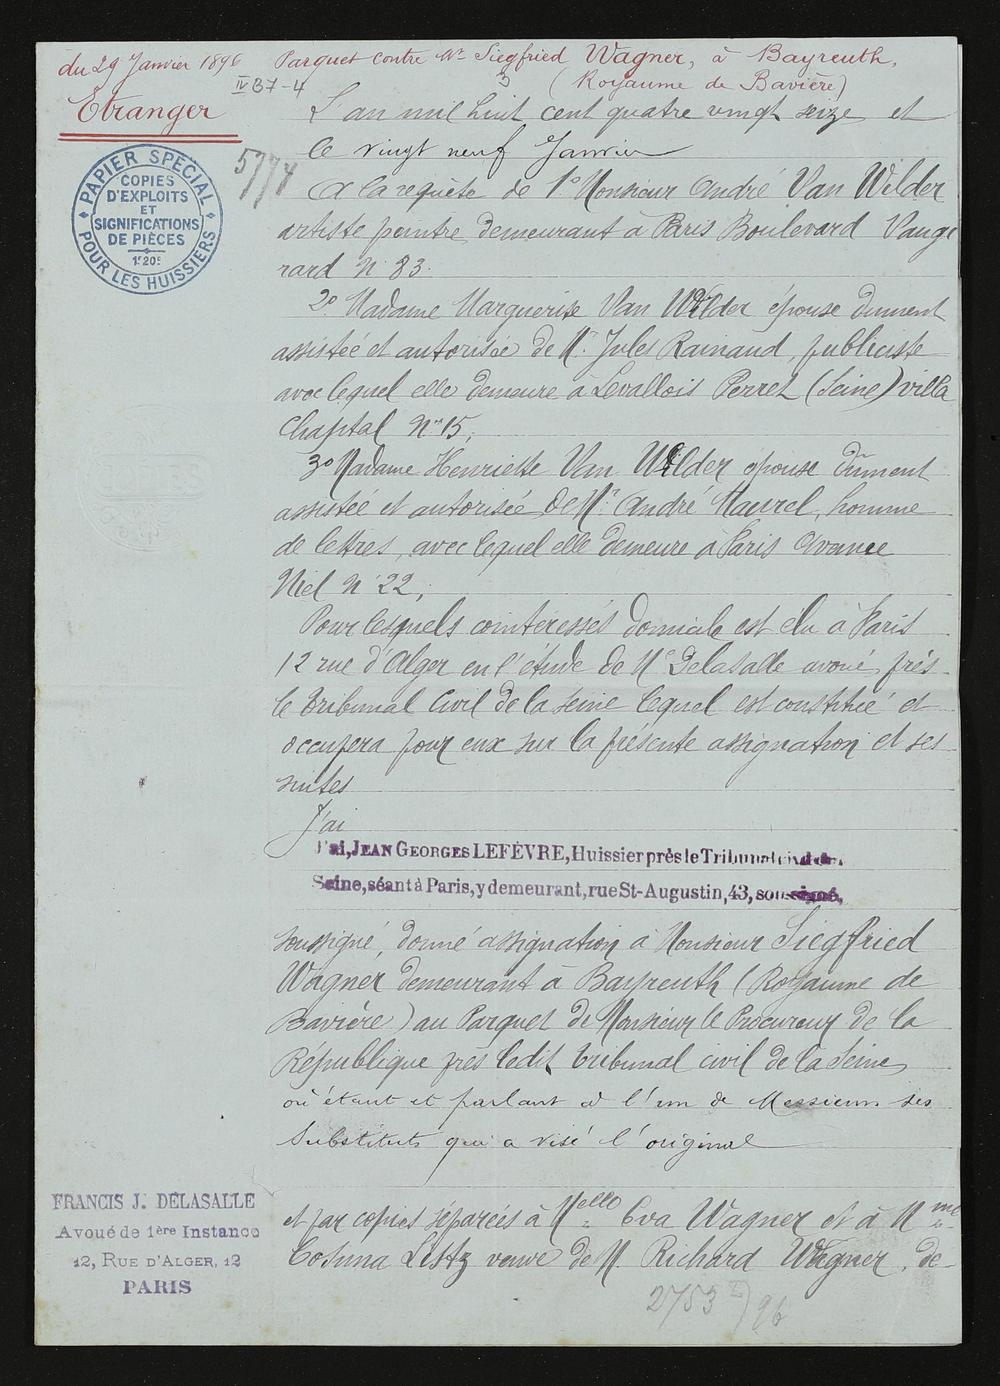 du 29 Janvier 1896 Parquet contre Mr Siegfried Wagner, à Bayreuth,
IV B7-4 3 (Royaume de Bavière)
Etranger
L'an mil huit cent quatre vingt seize et
le vingt neuf Janvier
5774
PAPIER SPÉCIAL
POUR LES HUISSIERS
COPIES
D'EXPLOITS
ET
SIGNIFICATIONS
DE PIÈCES
1F20C
A la requête de 1º Monsieur André Van Wilder
artiste peintre demeurant à Paris Boulevard Vaugi
rard Nº 83.
2º Madame Marguerite Van Wilder épouse dument
assistée et autorisée de Mr. Jules Rainaud, publiciste
avec lequel elle demeure à Levallois Perret (Seine) villa
Chaptal Nº 15;
3º Madame Henriette Van Wilder épouse dûment
assistée et autorisée de Mr. André Maurel, homme
de lettres, avec lequel elle demeure à Paris Avenue
Niel Nº 22;
Pour lesquels cointéressés domicile est élu à Paris
12 rue d'Alger en l'étude de Me Delasalle avoué près
le tribunal Civil de la Seine lequel est constitué et
occupera pour eux sur la présente assignation et ses
suites
J'ai
J'ai, JEAN GEORGES LEFÈVRE, Huissier près le Tribunal civil de la
Seine, séant à Paris, y demeurant, rue St-Augustin, 43, soussigné,
soussigné, donné assignation à Monsieur Siegfried
Wagner demeurant à Bayreuth (Royaume de
Bavière) au Parquet de Monsieur le Procureur de la
République près ledit tribunal civil de la Seine,
où étant et parlant à l'un de Messieurs ses
Substituts qui a visé l'original
et par copies séparées à Melle Eva Wagner et à Mme
Cosima Listz veuve de M. Richard Wagner, de-
FRANCIS J. DELASALLE
Avoué de 1ère Instance
12, RUE D'ALGER, 12
PARIS
2753 96